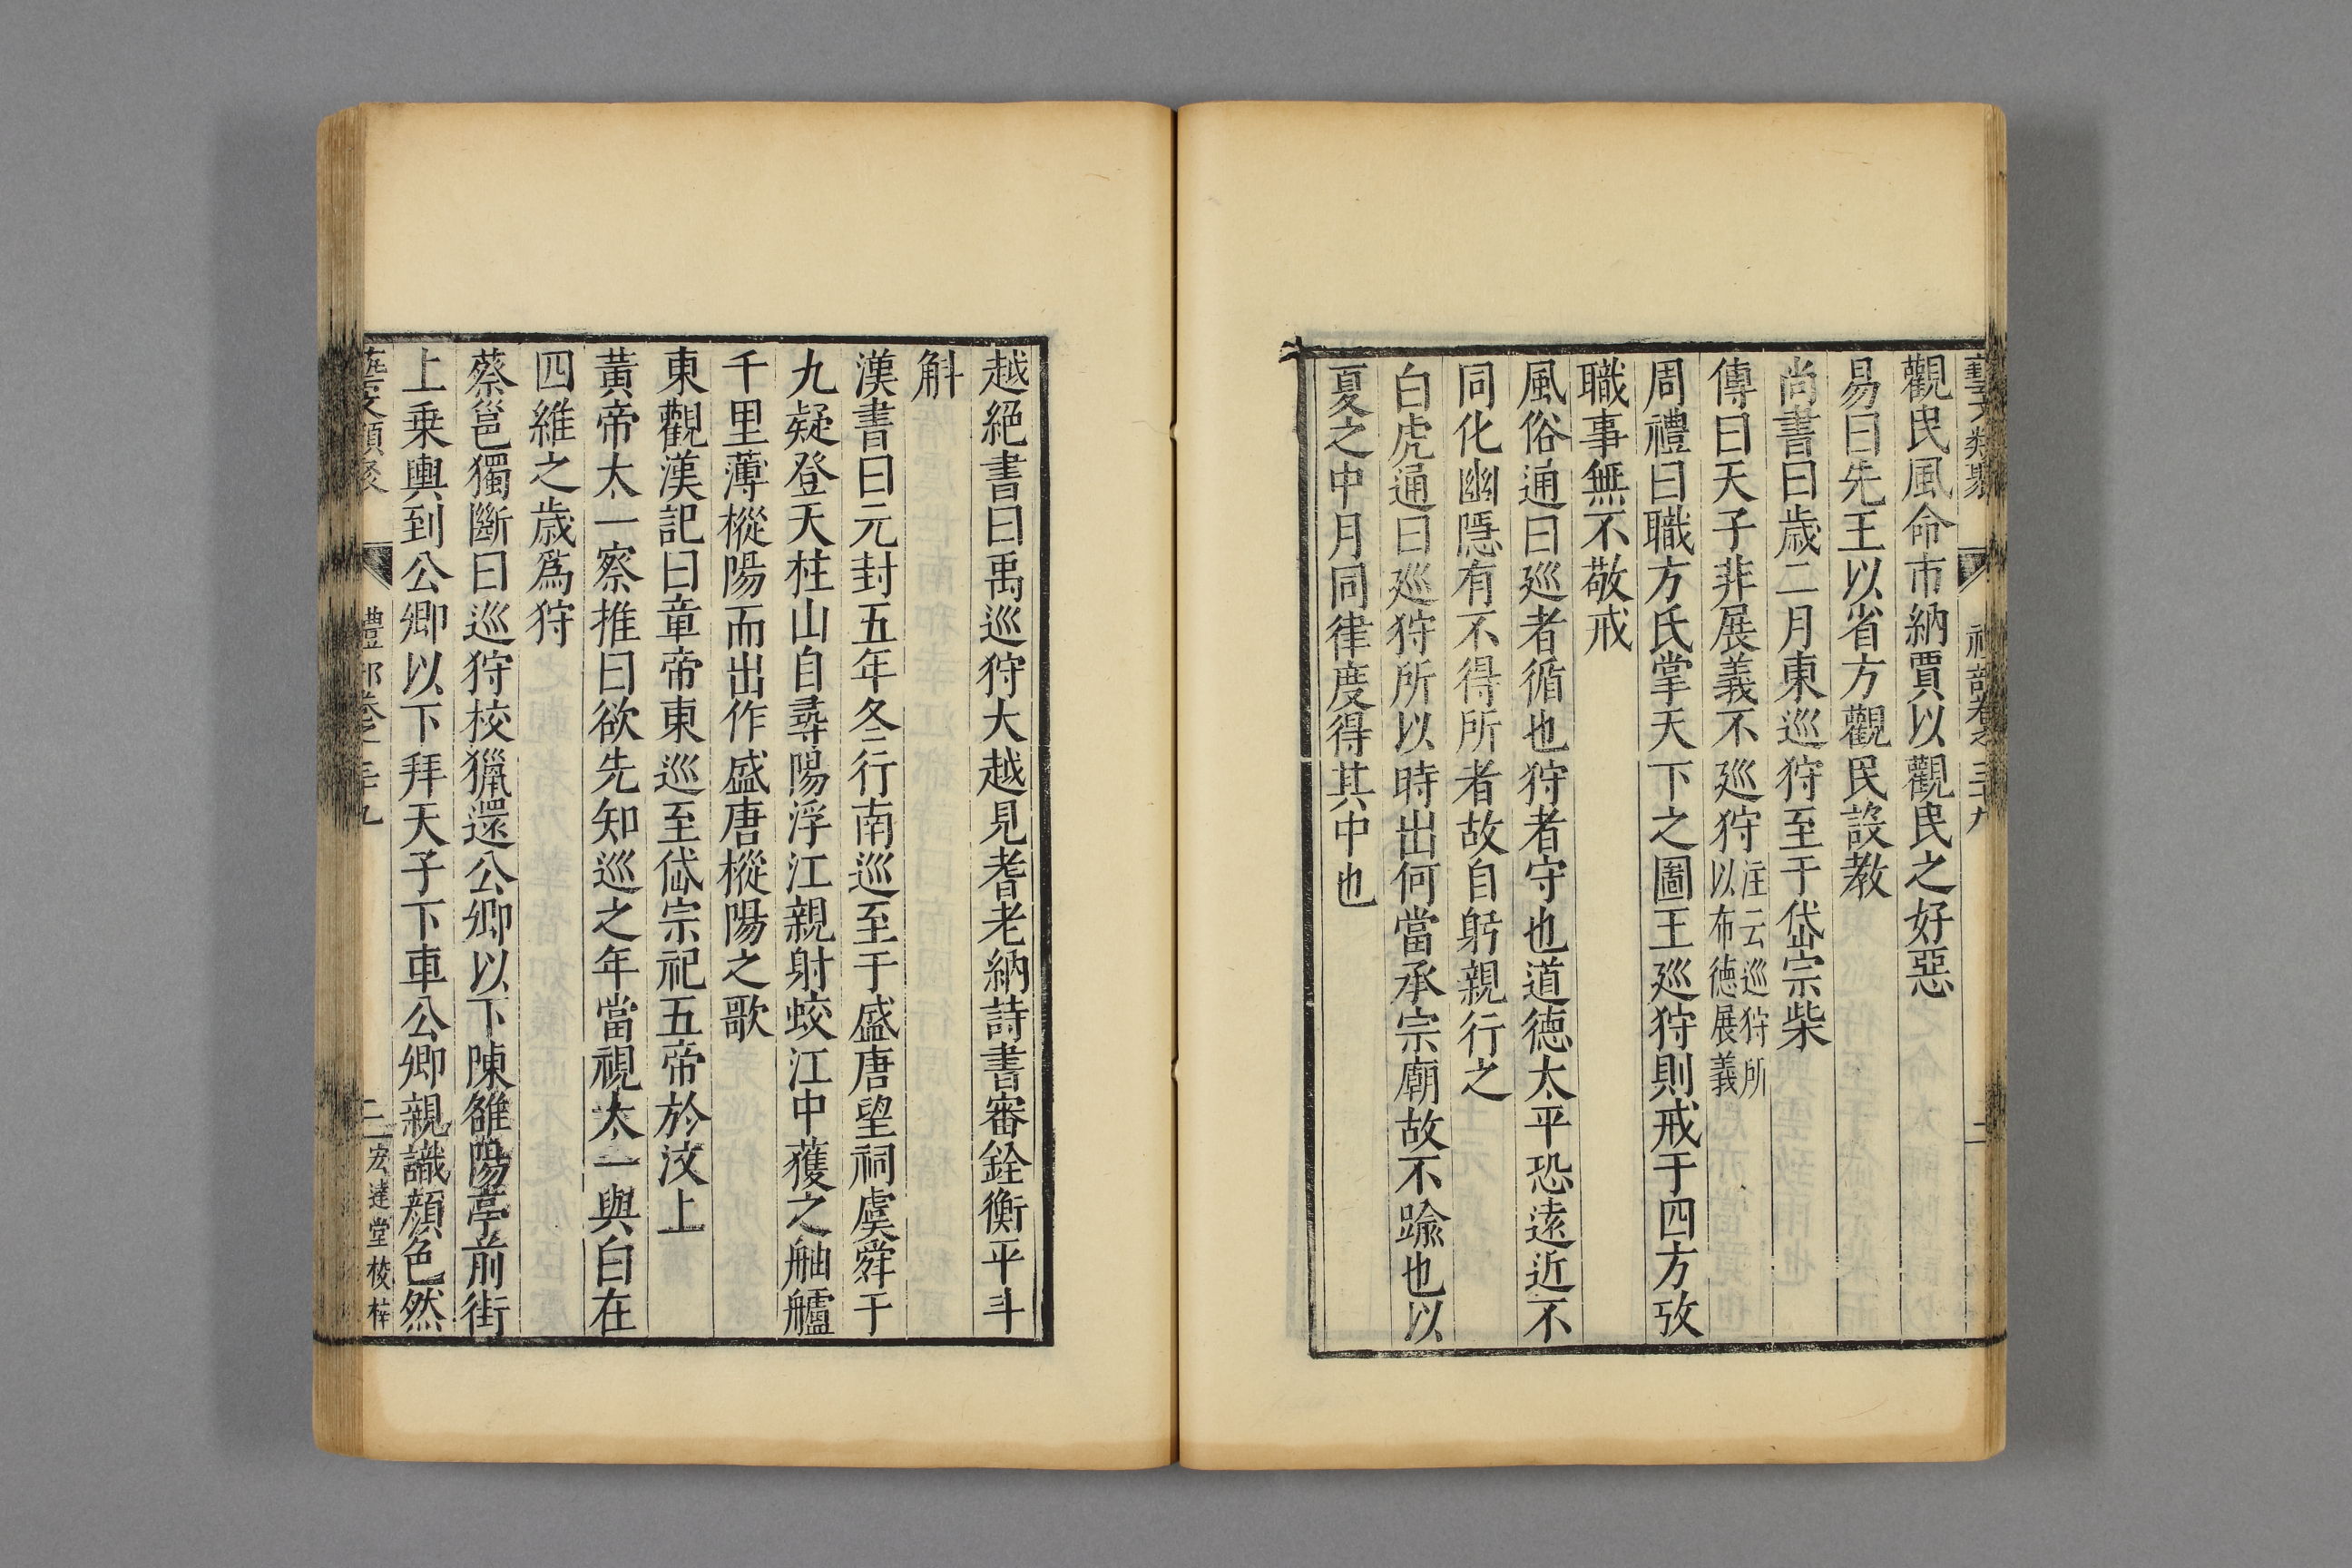 藝文類聚 禮部卷之三十九 二
觀民風命市納賈以觀民之好惡
易曰先王以省方觀民設教
尚書曰歲二月東巡狩至于岱宗柴
傳曰天子非展義不巡狩注云巡狩所以布德展義
周禮曰職方氏掌天下之圖王巡狩則戒于四方攷
職事無不敬戒
風俗通曰巡者循也狩者守也道德太平恐遠近不
同化幽隱有不得所者故自躬親行之
白虎通曰巡狩所以時出何當承宗廟故不踰也以
夏之中月同律度得其中也
越絕書曰禹巡狩大越見耆老納詩書審銓衡平斗
斛
漢書曰元封五年冬行南巡至于盛唐望祠虞舜于
九疑登天柱山自尋陽浮江親射蛟江中獲之舳艫
千里薄樅陽而出作盛唐樅陽之歌
東觀漢記曰章帝東巡至岱宗祀五帝於汶上
黃帝太一察推曰欲先知巡之年當視太一與白在
四維之歲爲狩
蔡邕獨斷曰巡狩校獵還公卿以下陳雒陽亭前街
上乗輿到公卿以下拜天子下車公卿親識顏色然
藝文類聚 禮部卷之三十九 二 宏達堂校梓